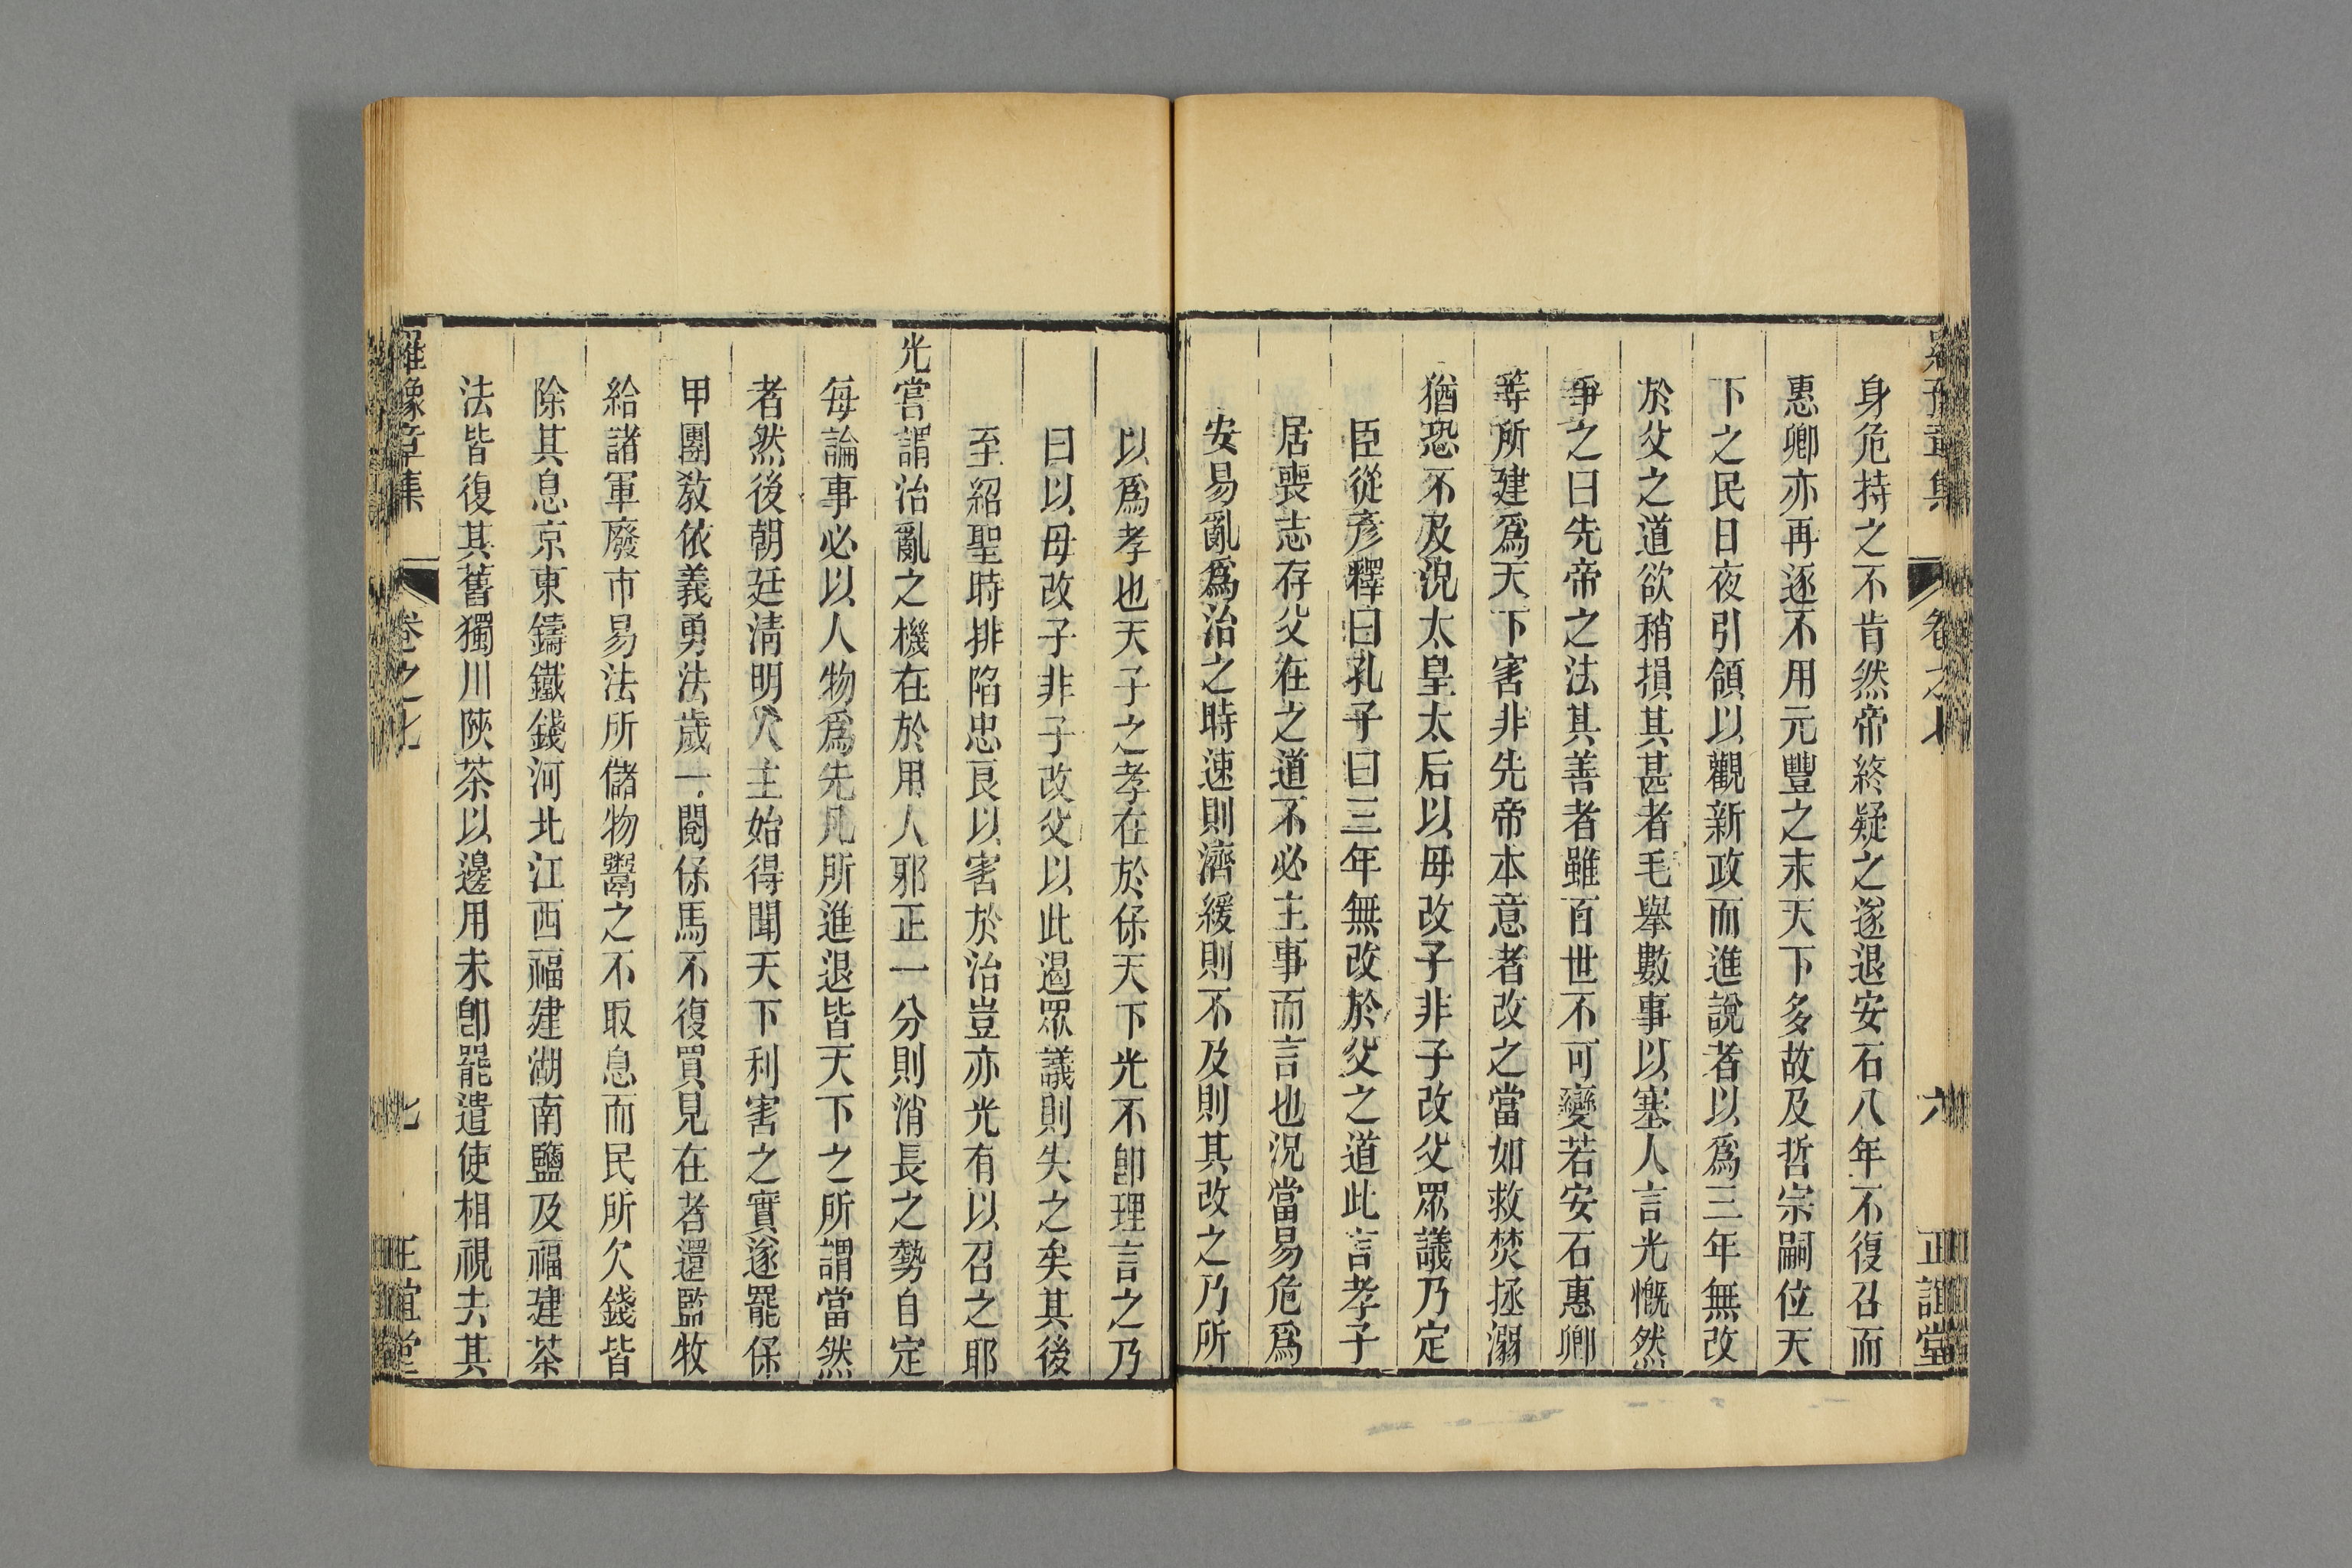 羅豫章集 卷之七 六 正誼堂
身危持之不肯然帝終疑之遂退安石八年不復召而
惠卿亦再逐不用元豐之末天下多故及哲宗嗣位天
下之民日夜引領以觀新政而進說者以爲三年無改
於父之道欲稍損其甚者毛舉數事以塞人言光慨然
爭之曰先帝之法其善者雖百世不可變若安石惠卿
等所建爲天下害非先帝本意者改之當如救焚拯溺
猶恐不及況太皇太后以母改子非子改父眾議乃定
臣從彥釋曰孔子曰三年無改於父之道此言孝子
居喪志存父在之道不必主事而言也況當易危爲
安易亂爲治之時速則濟緩則不及則其改之乃所
以爲孝也天子之孝在於保天下光不卽理言之乃
曰以母改子非子改父以此遏眾議則失之矣其後
至紹聖時排陷忠良以害於治豈亦光有以召之耶
光嘗謂治亂之機在於用人邪正一分則消長之勢自定
每論事必以人物爲先凡所進退皆天下之所謂當然
者然後朝廷淸明人主始得聞天下利害之實遂罷保
甲團敎依義勇法歲一閱保馬不復買見在者還監牧
給諸軍廢市易法所儲物鬻之不取息而民所欠錢皆
除其息京東鑄鐵錢河北江西福建湖南鹽及福建茶
法皆復其舊獨川陝茶以邊用未卽罷遣使相視去其
羅豫章集 卷之七 七 正誼堂